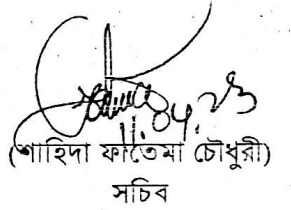 11.04.23
(শাহিদা ফাতেমা চৌধুরী)
সচিব